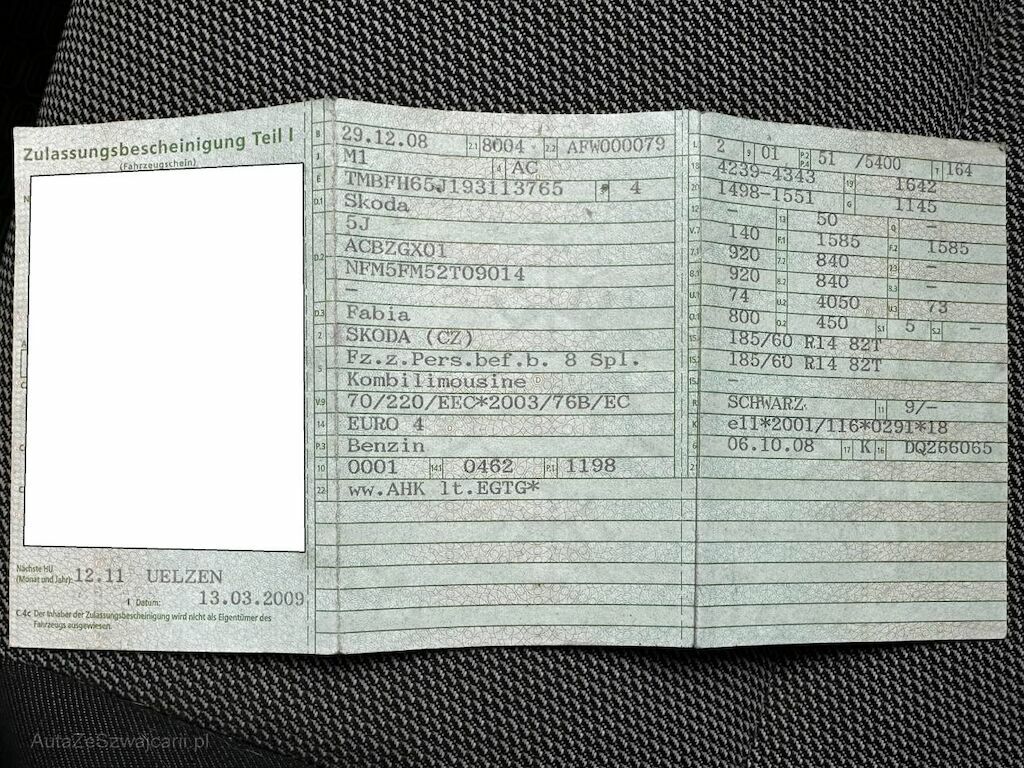 Zulassungsbescheinigung Teil I
(Fahrzeugschein)
Nächste HU
(Monat und Jahr): 12.11 UELZEN
I Datum: 13.03.2009
C.4c Der Inhaber der Zulassungsbescheinigung wird nicht als Eigentümer des
Fahrzeugs ausgewiesen.
B 29.12.08 2.1 8004 2.2 AFW000079
J M1 4 AC
E TMBFH65J193113765 3 4
D.1 Skoda
5J
D.2 ACBZGX01
NFM5FM52T09014
–
D.3 Fabia
2 SKODA (CZ)
5 Fz.z.Pers.bef.b. 8 Spl.
Kombilimousine
V.9 70/220/EEC*2003/76B/EC
14 EURO 4
P.3 Benzin
10 0001 14.1 0462 P.1 1198
22 ww.AHK lt.EGTG*
L 2 9 01 P.2 P.4 51 /5400 T 164
18 4239-4343 19 1642
20 1498-1551 G 1145
12 – 13 50 Q –
V.7 140 F.1 1585 F.2 1585
7.1 920 7.2 840 7.3 –
8.1 920 8.2 840 8.3 –
U.1 74 U.2 4050 U.3 73
O.1 800 O.2 450 S.1 5 S.2 –
15.1 185/60 R14 82T
15.2 185/60 R14 82T
15.3 –
R SCHWARZ 11 9/–
K e11*2001/116*0291*18
6 06.10.08 17 K 16 DQ266065
21
AutaZeSzwajcarii.pl